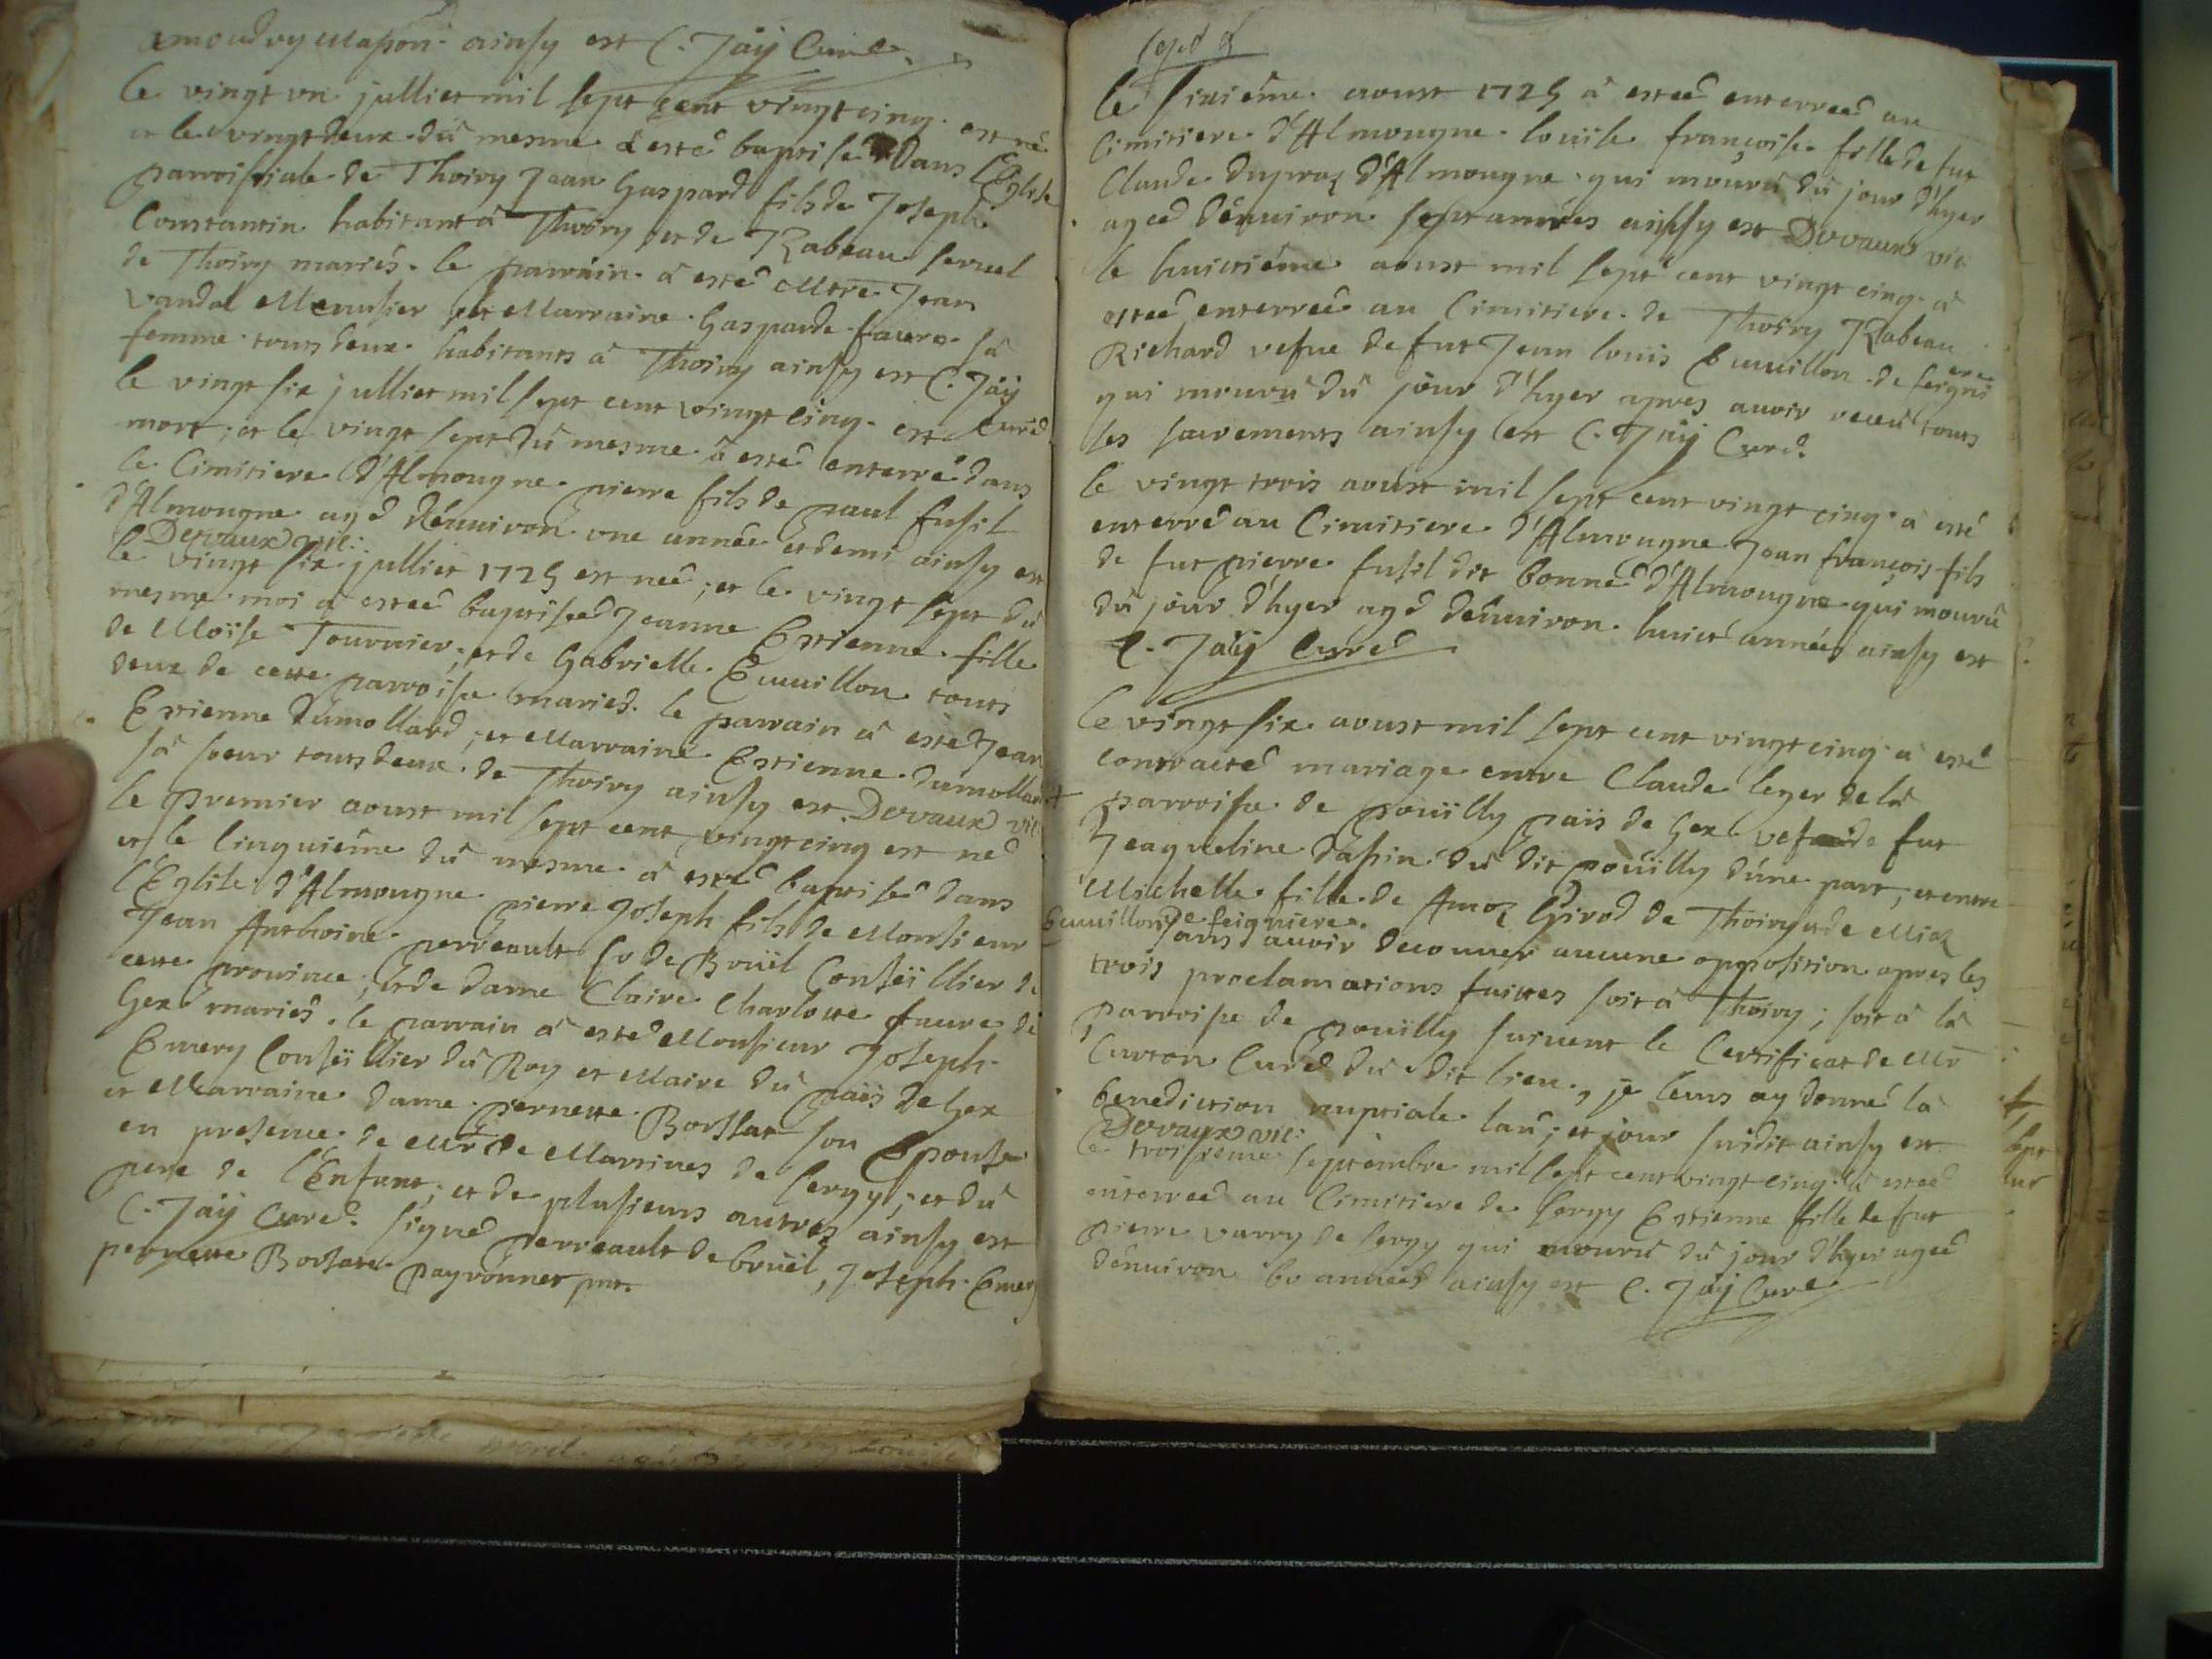 amoudry Masson. ainsy est C. Jaÿ Curé
le vingt un julliet mil sept cent vingt cinq. est né
et le vingt deux dû mesme à esté baptisé dans l'Eglise
parroissiale de Thoiry Jean Gaspard fils de Joseph
Constantin habitant à Thoiry et de Rabeau
de Thoiry mariés. le parrain à esté Mtre Jean
vandal Menusier et Marraine Gasparde favre sa
femme touts deux habitants à Thoiry ainsy est C. Jaÿ
Curé
le vingt six julliet mil sept cent vingt cinq. est
mort; et le vingt sept dû mesme à esté enterré dans
le Cimitiere d'Almougne pierre fils de paul fusil
d'Almougne agé d'énuiron une année et demi ainsy est
Devaux vic:
le vingt six julliet 1725 est neé; et le vingt sept dû
mesme moi à esteé baptiseé Jeanne Estienne fille
de Moïse Tournier, et de Gabrielle Emuillon touts
deux de cette parroisse mariés. le parrain à esté Jean
Estienne Dumollard; et Marraine Estienne Dumollard
sa soeur touts deux de Thoiry ainsy est Devaux vic
le premier aoust mil sept cent vingt cinq est né
et le Cinquiéme dû mesme à esté baptisé dans
l'Eglise d'Almougne pierre Joseph fils de Monsieur
Jean Anthoine perreault Sr de Brüel Conseïllier de
cette prouince; et de dame Claire Charlotte faure de
Gex mariés. le parrain à esté Monsieur Joseph
Emery Conseïllier dû Roy et Maire dû païs de Gex
et Marraine dame pernette Borssat son Epouse
en presence de Mr de Martines de Sergy; et dû
pere de l'Enfant; et de plusieurs autres ainsy est
C. Jaÿ Curé. signé perreault de brüel, Joseph Emery
pernette Borsate. payronnet pnt.

le sixiéme aoust 1725 à esteé enterreé au
Cimitiere d'Almougne loüise françoise fille de fut
Claude dupraz d'Almougne qui mourû dû jour d'hyer
ageé d'énuiron sept années ainsy est Devaux vic
le huictiéme aoust mil sept cent vingt cinq à
esteé enterreé au Cimitiere de Thoiry Rabeau
Richard vefue de fut Jean loüis Emuillon de feigni
ere
qui mourû dû jour d'hyer apres auoir receû touts
les sacrements ainsy est C. Jaÿ Curé.
le vingt trois aoust mil sept cent vingt cinq à esté
enterré au Cimitiere d'Almougne Jean françois fils
de fut pierre fusil dit bonne d'Almougne qui mourû
dû jour d'hyer agé d'énuiron huict années ainsy est
C. Jaÿ Curé
le vingt six aoust mil sept cent vingt cinq à esté
contracté mariage entre Claude leger de là
parroisse de poüilly païs de Gex fut
Jeaqueline dû dit poüilly d'une part, et entre
Michelle fille de Amoz Girod de Thoiry
Emuillon de feigniere
sans auoir decouuer aucune opposition apres les
trois proclamations faittes soit à Thoiry; soit à là
parroisse de poüilly suiuent le Certificat de Mr
Curton Curé dû dit lieu, je leurs ay donné là
benediction nuptiale l'an; et jour susdit ainsy est
Devaux vic:
le troisieme septembre mil sept cent vingt cinq à esteé
enterreé au Cimitiere de Sergy Estienne fille de fut
pierre varry de Sergy qui mourû dû jour d'hyer ageé
d'énuiron 60 années ainsy est C. Jaÿ Curé